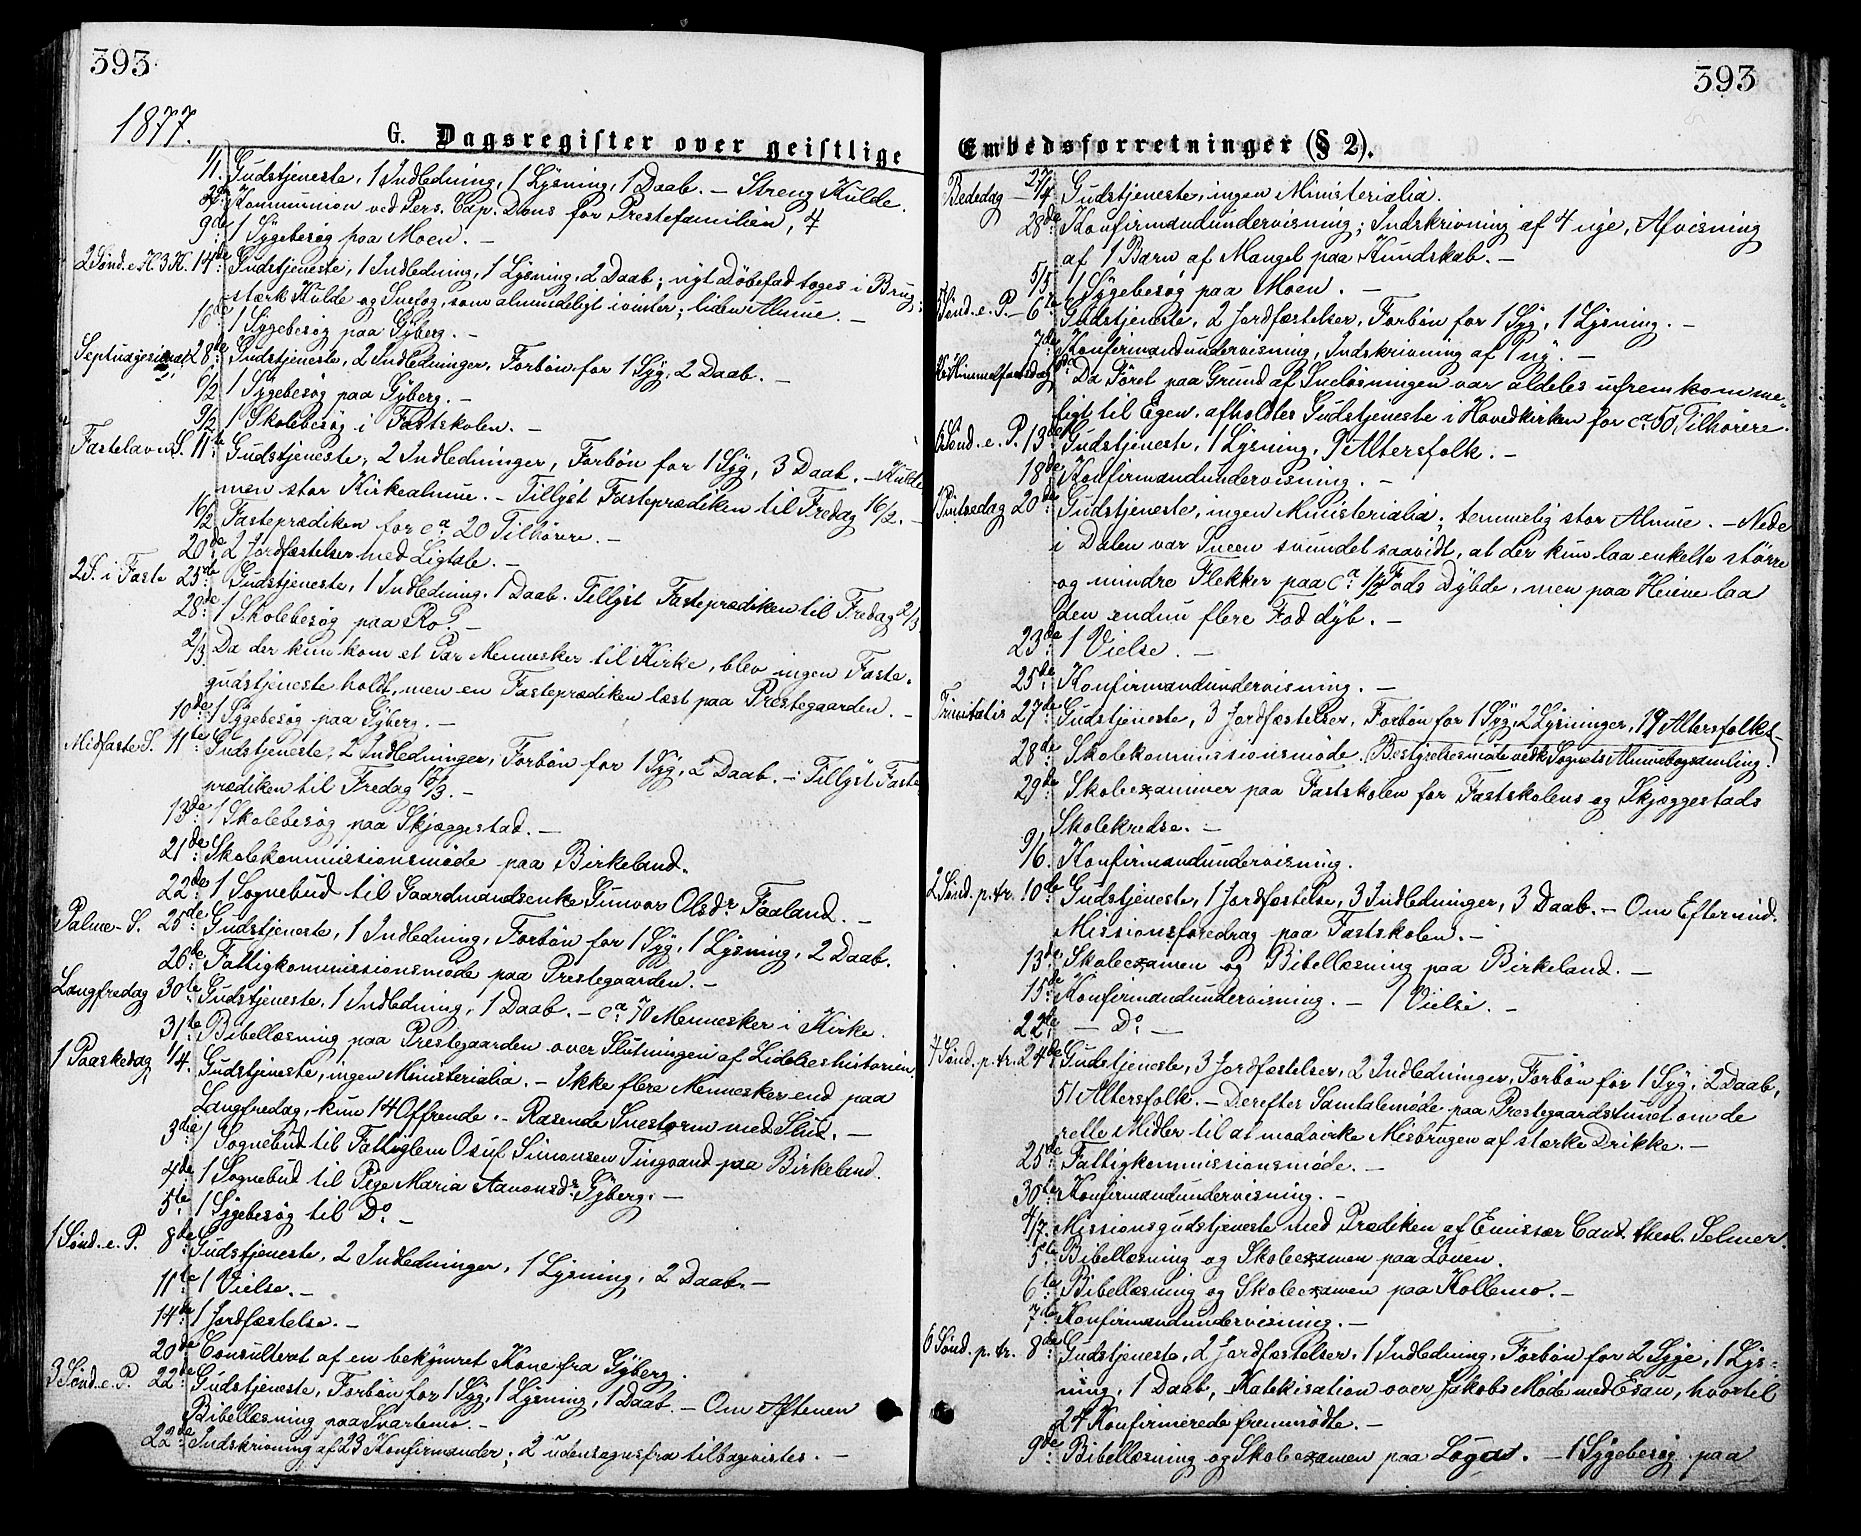 393
1877.
G. Dagsregister over geistlige
1/1. Gudstjeneste, 1 Indledning, 1 Lysning, 1 Daab. — Streng Kulde.
Kommunion ved Pers. Cap. Dons for Prestefamilien, 4
9de 1 Sygebesøg paa Moen. —
2 Sønd. e. H 3 K. 14de Gudstjeneste, 1 Indledning, 1 Lysning, 2 Daab; nyt Døbefad toges i Brug;
stærk Kulde og Snefog, som almindeligt i vinter; liden Almue. —
16de 1 Sygebesøg paa Gyberg. —
Septuagesima S. 28de Gudstjeneste, 2 Indledninger, Forbøn for 1 Syg, 2 Daab. —
/2 1 Sygebesøg paa Gyberg. —
9/2 1 Skolebesøg i Fastskolen. —
Fastelavns S. 11te Gudstjeneste, 2 Indledninger, Forbøn for 1 Syg, 3 Daab. — Kulde
men stor Kirkealmue. — Tillyst Fasteprædiken til Fredag 16/2. —
16/2 Fasteprædiken for ca 20 Tilhørere. —
20de 2 Jordfæstelser med Ligtale. —
2 S. i Faste 25de Gudstjeneste, 1 Indledning, 1 Daab. Tillyst Fasteprædiken til Fredag 2/3.
28de 1 Skolebesøg paa Ro. —
2/3 Da der kun kom et Par Mennesker til Kirke, blev ingen Faste-
gudstjeneste holdt, men en Fasteprædiken læst paa Prestegaarden. —
10de 1 Sygebesøg paa Gyberg. —
Midfaste S. 11te Gudstjeneste, 2 Indledninger, Forbøn for 1 Syg, 2 Daab. — Tillyst Faste
prædiken til Fredag 16/3. —
13de 1 Skolebesøg paa Skjæggestad. —
21de Skolekommissionsmøde paa Birkeland.
22de 1 Sognebud til Gaardmandsenke Gunvor Olsdr Faaland. —
Palme-S. 25de Gudstjeneste, 1 Indledning, Forbøn for 1 Syg, 1 Lysning, 2 Daab.
26de Fattigkommissionsmøde paa Prestegaarden. —
Langfredag 30te Gudstjeneste, 1 Indledning, 1 Daab. — ca 70 Mennesker i Kirke.
31te Bibellæsning paa Prestegaarden over Slutningen af Lidelseshistorien.
1 Paaskedag 1/4. Gudstjeneste, ingen Ministerialia. — Ikke flere Mennesker end paa
Langfredag, kun 14 Offrende. — Rasende Snestorm med Slud. —
3die 1 Sognebud til Fattiglem Osuf Simonsen Tingvand paa Birkeland.
4de 1 Sognebud til Pige Maria Aanonsdr Gyberg. —
5te 1 Sygebesøg til Do. —
1 Sønd. e. P. 8de Gudstjeneste, 2 Indledninger, 1 Lysning, 2 Daab. —
11te 1 Vielse. —
14de 1 Jordfæstelse. —
20de Consulteret af en bekymret Kone fra Gyberg.
3 Sønd. e. P. 22de Gudstjeneste, Forbøn for 1 Syg, 1 Lysning, 1 Daab. — Om Aftenen
Bibellæsning paa Svartemo. —
22de Indskrivning af 23 Konfirmander; 2 udensognsfra tilbagevistes. —
393
Embedsforretninger (§ 2).
Bededag — 27/4 Gudstjeneste, ingen Ministerialia.
28de Konfirmandundervisning; Indskrivning af 4 nye, Afvisning
af 1 Barn af Mangel paa Kundskab. —
5/5 1 Sygebesøg paa Moen. —
5 Sønd. e. P. — 6te Gudstjeneste, 2 Jordfæstelser, Forbøn for 1 Syg, 1 Lysning. —
7de Konfirmandundervisning, Indskrivning af 1 ny. —
Kr. Himmelfartsdag Da Føret paa Grund af Sneløsningen var aldeles ufremkomme-
ligt til Egen, afholdtes Gudstjeneste i Hovedkirken for ca 50 Tilhørere.
6 Sønd. e. P. 13de Gudstjeneste, 1 Lysning, 9 Altersfolk. —
18de Konfirmandundervisning. —
1 Pintsedag 20de Gudstjeneste, ingen Ministerialia, temmelig stor Almue. — Nede
i Dalen var Sneen svundet saavidt, at der kun laa enkelte større
og mindre Flekker paa ca 1/2 Fods Dybde, men paa Heiene laa
den endnu flere Fod dyb. —
23de 1 Vielse. —
25de Konfirmandundervisning. —
Trinitatis 27de Gudstjeneste, 3 Jordfæstelser, Forbøn for 1 Syg, 2 Lysninger, 19 Altersfolk. —
28de Skolekommissionsmøde. Bestyrelsesmøde vedk. Sognets Almuebogsamling.
29de Skoleexaminer paa Fastskolen for Fastskolens og Skjæggestads
Skolekredse. —
9/6. Konfirmandundervisning.
2 Sønd. p. tr. 10de Gudstjeneste, 1 Jordfæstelse, 3 Indledninger, 3 Daab. — Om Eftermid.
Missionsforedrag paa Fastskolen. —
13de Skoleexamen og Bibellæsning paa Birkeland. —
15de Konfirmandundervisning. — 1 Vielse. —
22de — Do —
4 Sønd. p. tr. 24de Gudstjeneste, 3 Jordfæstelser, 2 Indledninger, Forbøn for 1 Syg, 2 Daab,
51 Altersfolk. — Derefter Samtalemøde paa Prestegaardstunet om de
rette Midler til at modvirke Misbrugen af stærke Drikke. —
25de Fattigkommissionsmøde. —
30te Konfirmandundervisning. —
4/7. Missionsgudstjeneste med Prædiken af Emissær Cand. theol. Selmer.
5te Bibellæsning og Skoleexamen paa Louen.
6te Bibellæsning og Skoleexamen paa Kollemo. —
7de Konfirmandundervisning. —
6 Sønd. p. tr. 8de Gudstjeneste, 2 Jordfæstelser, 1 Indledning, Forbøn for 2 Syge, 1 Lys-
ning, 1 Daab, Katekisation over Jakobs Møde med Esau, hvortil
24 Konfirmerede fremmødte. —
9de Bibellæsning og Skoleexamen paa Loga. — 1 Sygebesøg paa